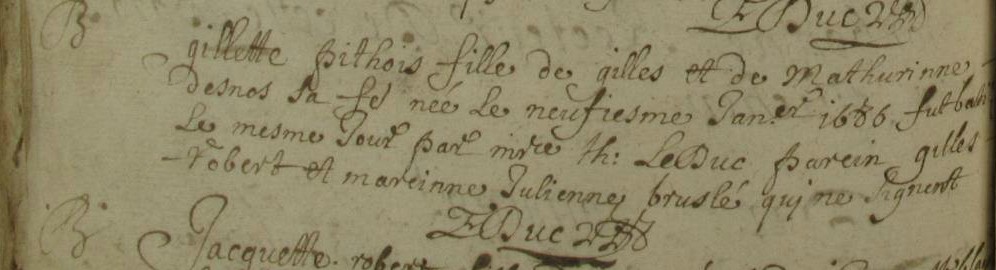 LeDuc
B
gillette pithois fille de gilles et de Mathurinne
desnos sa fe née Le neufiesme Janer 1686 fut bati
Le mesme Jour par mire th: LeDuc parein gilles
Robert et mareinne Julienne bruslé qui ne signent
LeDuc
B
Jacquette robert